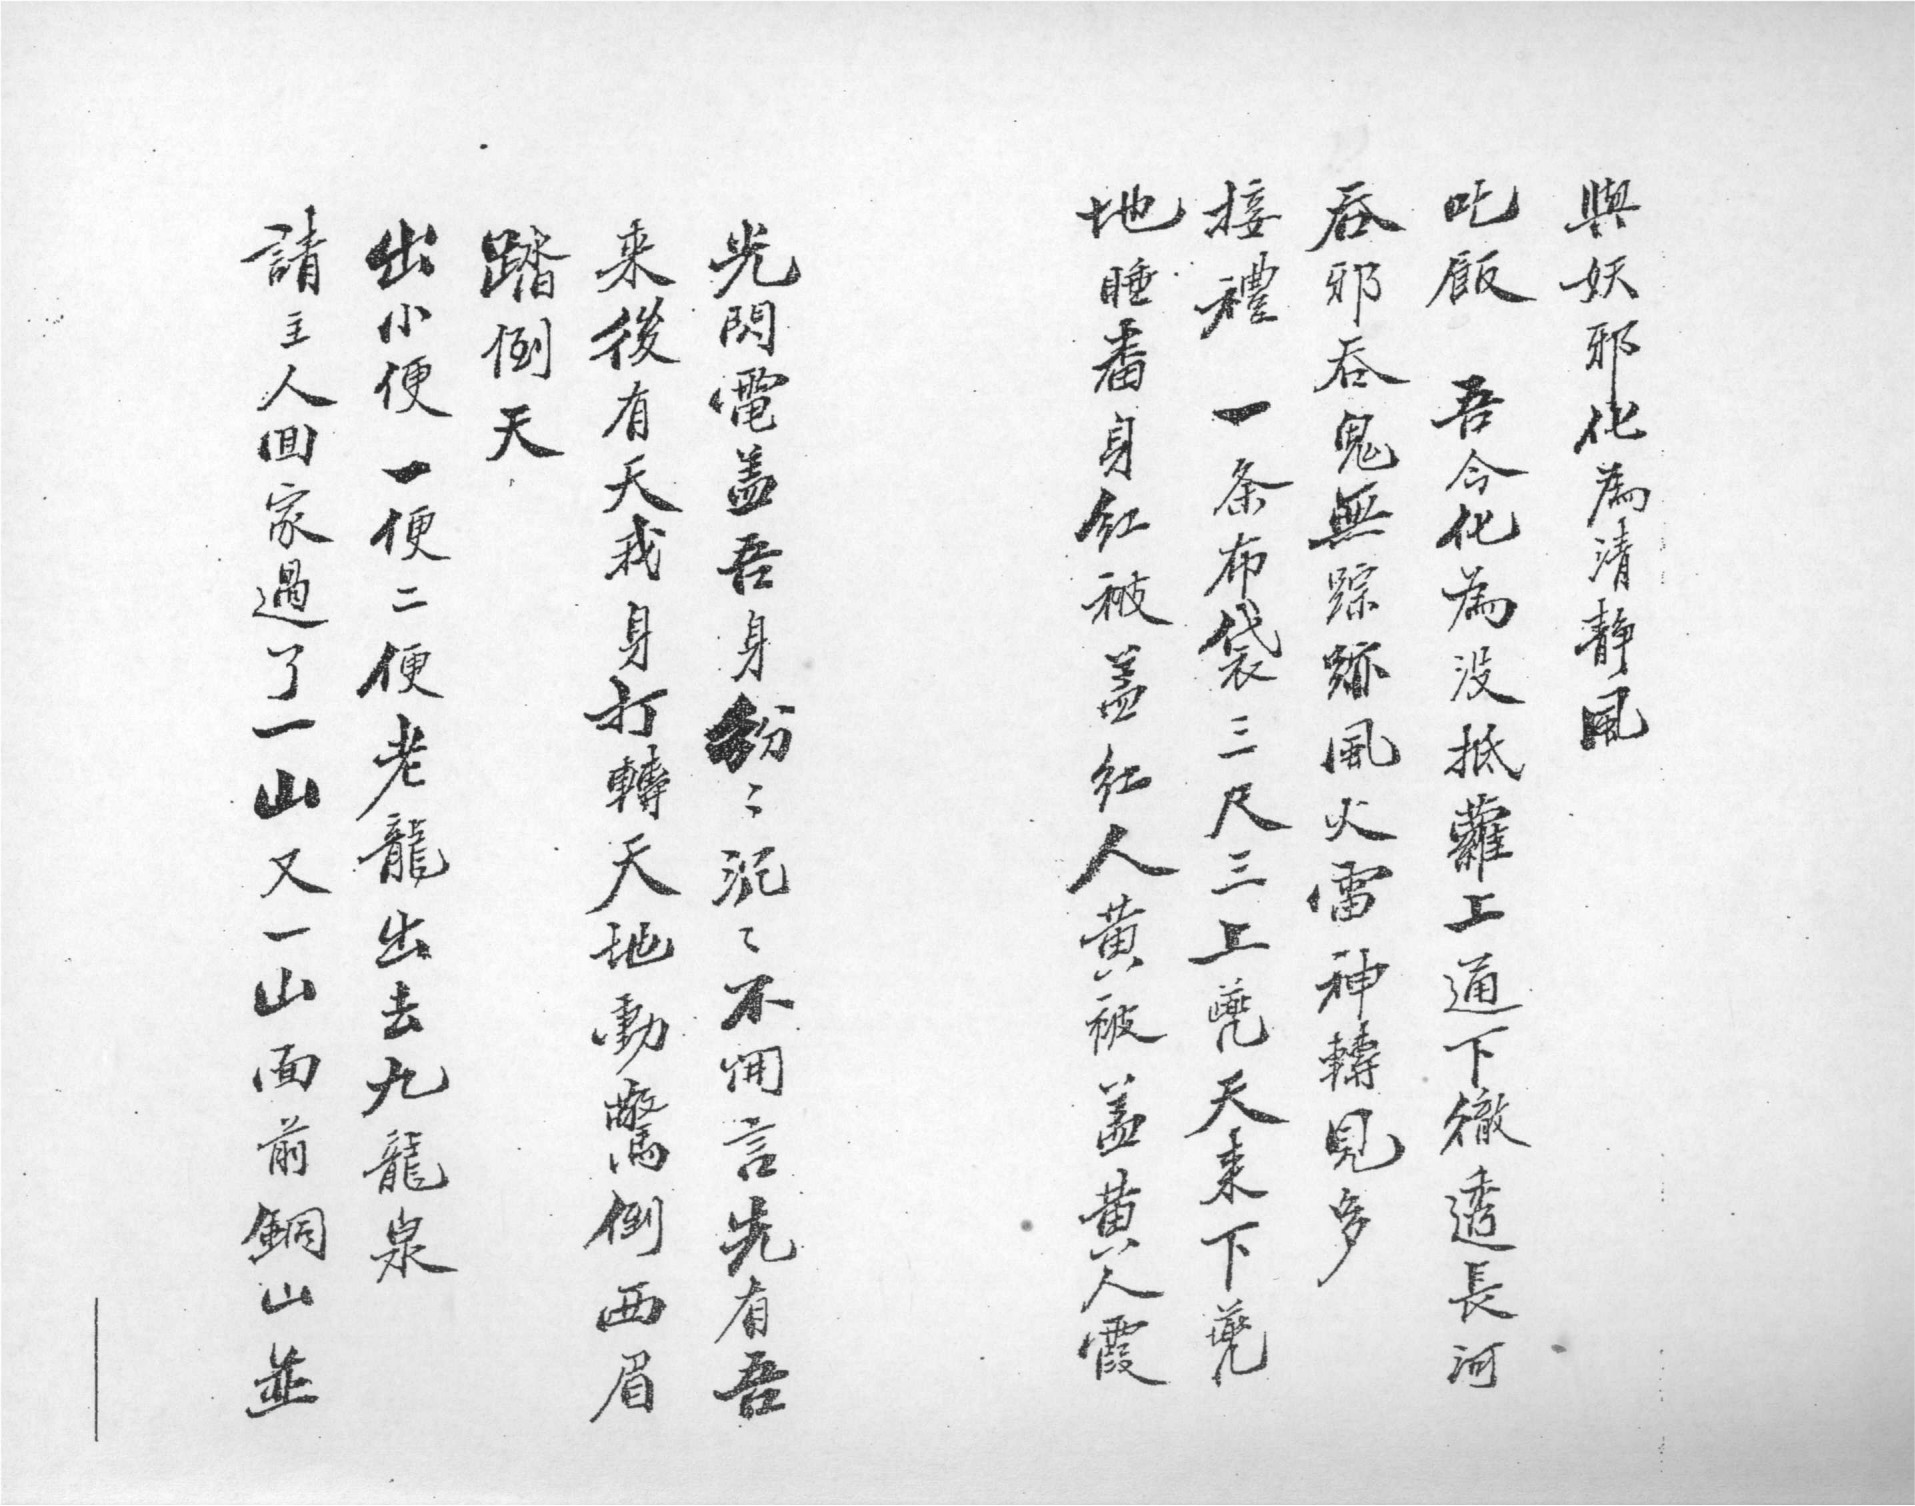 與妖邪化為清靜風
吃飯　吾今化為没抵蘿上通下徹透長河
吞邪吞鬼無踪跡風火雷神轉見多
接禮　一条布袋三尺三上 天来下
地睡番身紅被盖紅人黄被盖黄人霞
光閃電盖吾身紛〻混〻不用言先有吾
来後有天我身打轉天地動驚倒西眉
踏倒天
出小便一便二便老龍出去九龍泉
請主人回家過了一山又一山面前銅山並